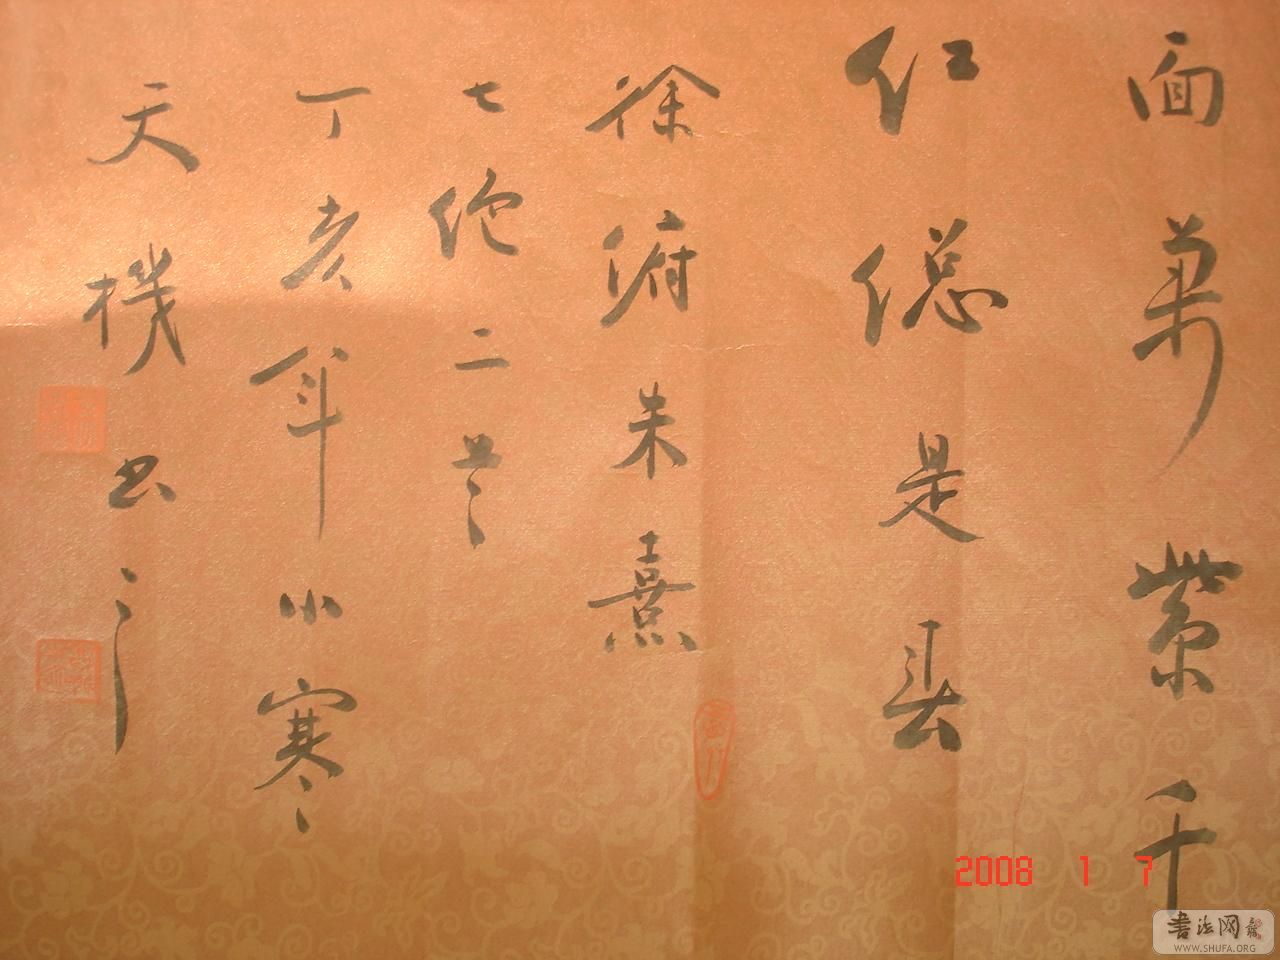 面萬紫千
红總是春
徐府朱熹
七绝二首
丁亥年小寒
天機书之
2008 1 7
书法网
WWW.SHUFA.ORG